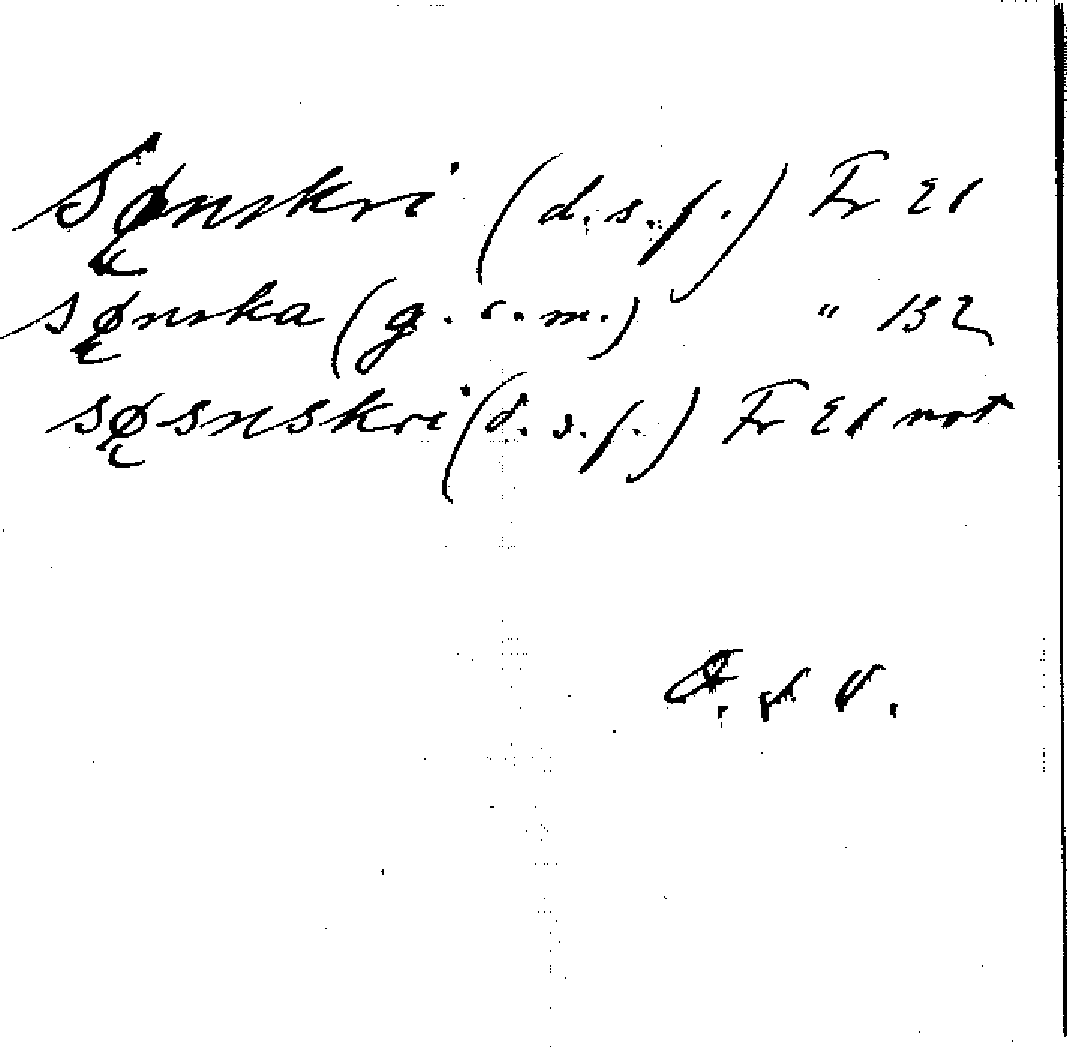 sǫ̸nskri (d. s. f.) Fr 21
sǫ̸nska (g. s. m.) " 132
sǫ̸snskri (d. s. f.) Fr 21 not